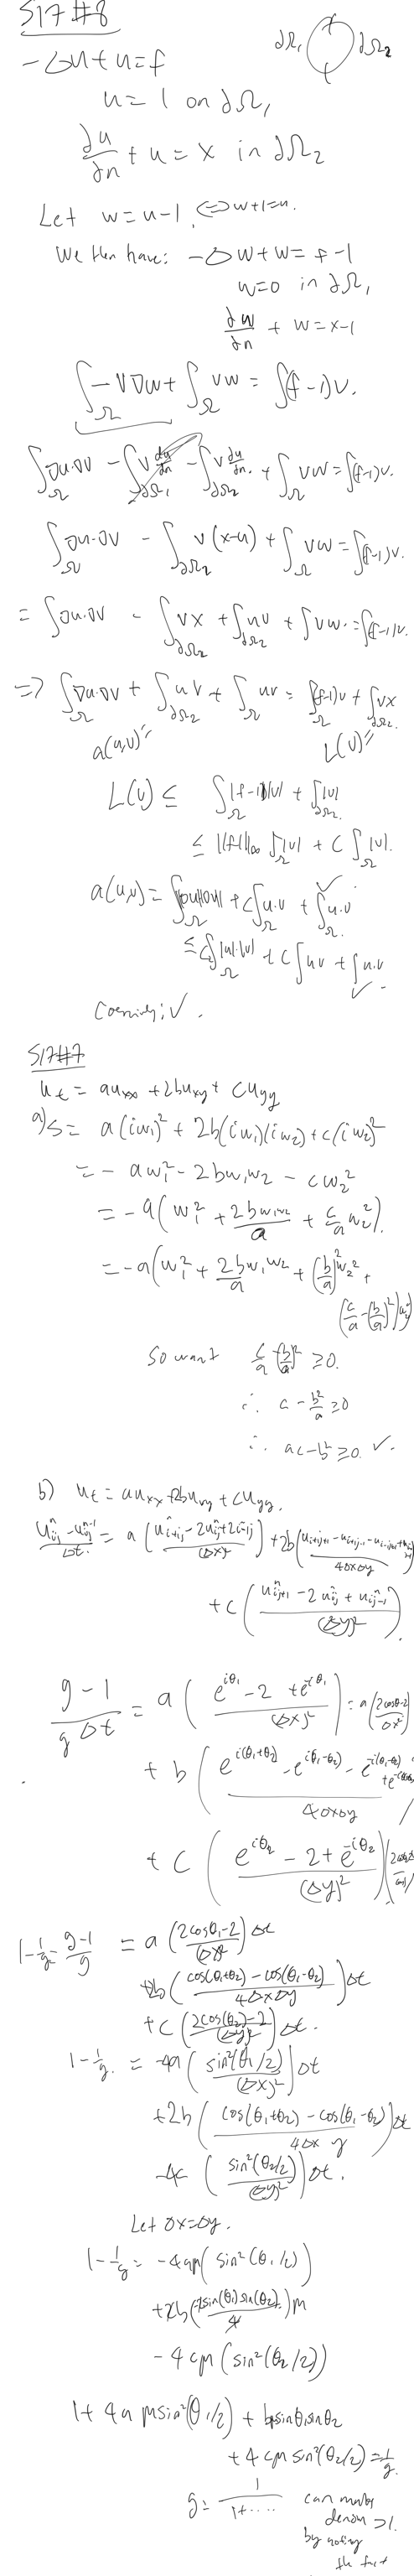 S17 #8
-Δu+u=f
∂Ω₁ ∂Ω₂
u=1 on ∂Ω₁
∂u/∂n + u = x in ∂Ω₂
Let w=u-1. ⇔ w+1=u.
We then have: -Δw+w = f-1
w=0 in ∂Ω₁
∂w/∂n + w = x-1
∫_Ω -v∇w + ∫_Ω vw = ∫(f-1)v.
∫_Ω ∇u·∇v - ∫_∂Ω₁ v du/dn - ∫_∂Ω₂ v du/dn + ∫_Ω vw = ∫(f-1)v.
∫_Ω ∇u·∇v - ∫_∂Ω₂ v(x-u) + ∫_Ω vw = ∫(f-1)v.
= ∫∇u·∇v - ∫_∂Ω₂ vx + ∫_∂Ω₂ uv + ∫vw = ∫(f-1)v.
=> ∫_Ω ∇u·∇v + ∫_∂Ω₂ uv + ∫_Ω uv = ∫_Ω (f-1)v + ∫_∂Ω₂ vx
a(u,v)" L(v)"
L(v) ≤ ∫_Ω |f-1||v| + ∫_∂Ω₂ |v|
≤ ||f-1||∞ ∫_Ω |v| + C ∫_Ω |v|.
a(u,v) = ∫_Ω |∇u||∇v| + c∫_Ω u·v + ∫_Ω u·v
≤ C₂∫_Ω |u|·|v| + C∫uv + ∫u·v ✓.
Coercivity: ✓.
S17#7
u_t = au_xx + 2bu_xy + cu_yy
a) S = a(iw₁)² + 2b(iw₁)(iw₂) + c(iw₂)²
= -aw₁² - 2bw₁w₂ - cw₂²
= -a(w₁² + 2bw₁w₂/a + c/a w₂²).
= -a(w₁² + 2bw₁w₂/a + (b/a)²w₂² +
(c/a - (b/a)²)w₂²)
So want c/a - (b/a)² ≥ 0.
∴ c - b²/a ≥ 0
∴ ac-b² ≥ 0. ✓.
b) u_t = au_xx + 2bu_xy + cu_yy.
(u^n_ij - u^n-1_ij)/Δt = a((u^n_i+1j - 2u^n_ij + u^n_i-1j)/(Δx)²) + 2b((u_i+1,j+1 - u_i+1,j-1 - u_i-1,j+1 + u_i-1,j-1)/4ΔxΔy)
+ c((u^n_ij+1 - 2u^n_ij + u^n_ij-1)/(Δy)²).
(g-1)/(gΔt) = a((e^iθ₁ - 2 + e^-iθ₁)/(Δx)²) = a((2cosθ₁-2)/Δx²)
+ b((e^i(θ₁+θ₂) - e^i(θ₁-θ₂) - e^-i(θ₁-θ₂) + e^-i(θ₁+θ₂))/4ΔxΔy)
+ c((e^iθ₂ - 2 + e^-iθ₂)/(Δy)²)
1-1/g = (g-1)/g = a((2cosθ₁-2)/(Δx)²)Δt
+2b((cos(θ₁+θ₂) - cos(θ₁-θ₂))/4ΔxΔy)Δt
+c((2cos(θ₂)-2)/(Δy)²)Δt.
1-1/g = -4a(sin²(θ₁/2)/(Δx)²)Δt
+2b((cos(θ₁+θ₂) - cos(θ₁-θ₂))/4Δx y)Δt
-4c(sin²(θ₂/2)/(Δy)²)Δt.
Let Δx=Δy.
1-1/g = -4aμ(sin²(θ₁/2))
+2b(-2sin(θ₁)sin(θ₂)/4)μ
-4cμ(sin²(θ₂/2))
1+4aμsin²(θ₁/2) + bμsinθ₁sinθ₂
+4cμsin²(θ₂/2) = 1/g.
g = 1/(1+....) can make
denom >1.
by noting
the fact